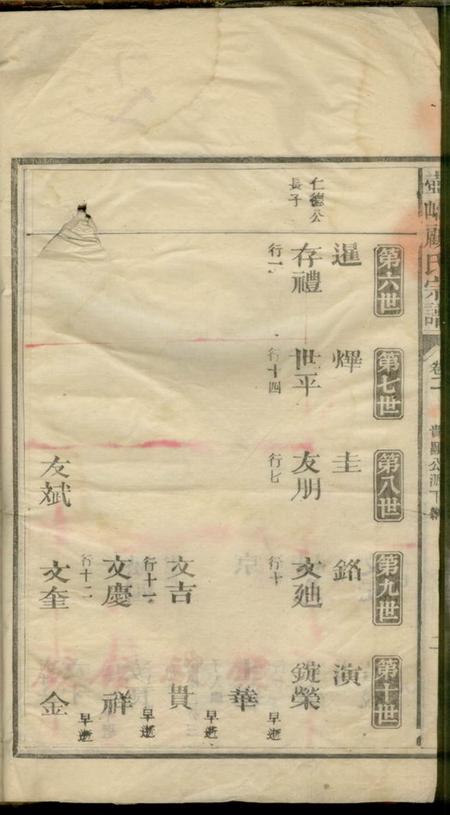 顧氏宗譜
卷二
第六世
第七世
第八世
第九世
第十世
暹
燁
圭
銘
演
仁德公
長子
存禮
行一
世平
行十四
友朋
行七
文迪
行十
錠榮
早逝
華
早逝
文吉
行十一
貴
早逝
文慶
行十二
祥
早逝
友斌
文奎
金